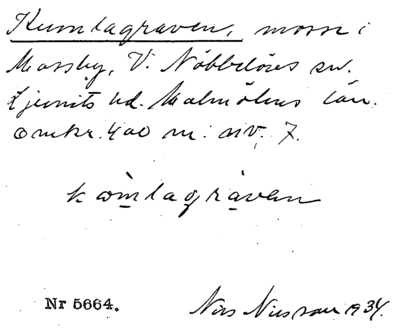 Kumlagraven, mosse i
Mossby, V. Nöbbelövs sn.
Ljunits hd. Malmöhus län.
Omkr. 400 m: nv. 7.
kòmlagràven
Nr 5664.
Nils Nilsson 1934.